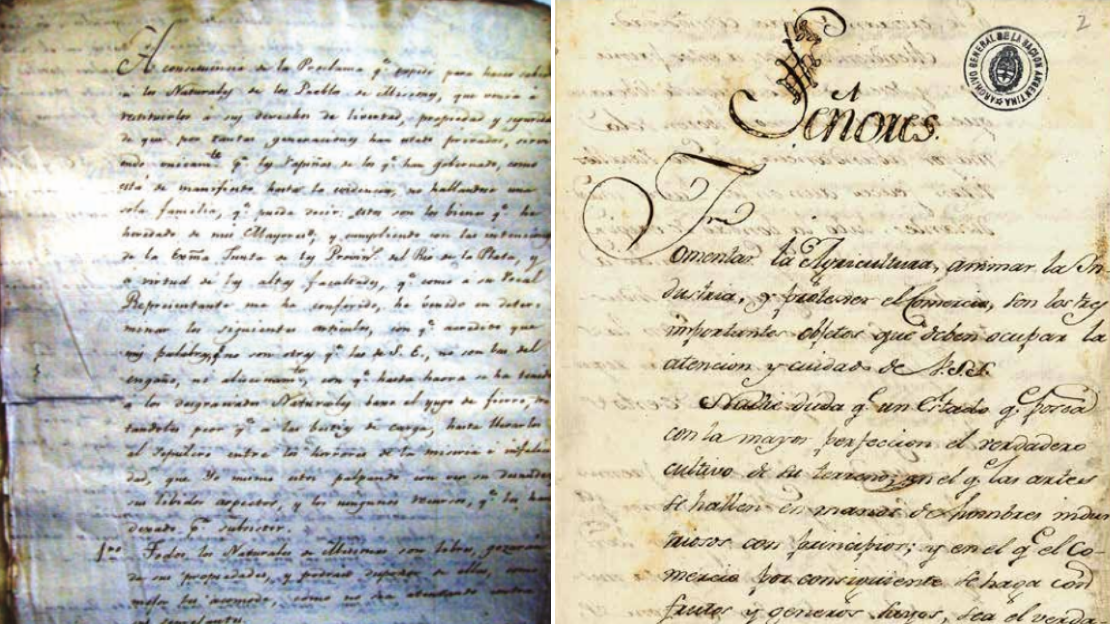 A consecuencia de la Proclama qe expidi para hacer saber
a los Naturales de los Pueblos de Misiones, que venia á
restituirlos á sus derechos de libertad, propiedad y segurida
de que por tantas generaciones han estado privados, sirvi
endo unicamte pa las rapiñas de los qe han gobernado, como
esta de manifiesto hasta la evidencia, no hallandose una
sola familia, qe pueda decir: estos son los bienes qe he
heredado de mis Mayores; y cumpliendo con las intenciones
de la Exma Junta de las Provins del Rio de la Plata, y
á virtud de las altas facultades, qe como á su Vocal
Representante me ha conferido, he venido en deter-
minar los siguientes articulos, con qe acredito que
mis palabras, no son otras qe las de S. E., no son las del
engaño, ni alucinamto, con qe hasta haora se ha tenido
á los desgraciados Naturales baxo el yugo de fierro, tra
tandolos peor qe á las bestias de carga, hasta llevarlos
al sepulcro entre los horrores de la miseria é infelici
dad, que Yo mismo estoi palpando con ver su desnudez
sus lividos aspectos, y los ningunos recursos, qe les han
dexado pa subsistir.
1ro Todos los Naturales de Misiones son libres, gozarán
de sus propiedades, y podrán disponer de ellas, como
mejor les acomode, como no sea atentando contra
sus semejantes.
2
ARCHIVO GENERAL DE LA NACION ARGENTINA
Señores.
Fomentar la Agricultura, animar la In
dustria, y proteger el Comercio, son los tres
importantes objetos que deben ocupar la
atencion y cuidado de V.SS.
Nadie duda qe un Estado qe posea
con la mayor perfeccion el verdadero
cultivo de su terreno; en el qe las artes
se hallen en manos de hombres indus
triosos con principios; y en el qe el Co-
mercio por consiguiente se haga con
frutos y generos suyos, sea el verda-